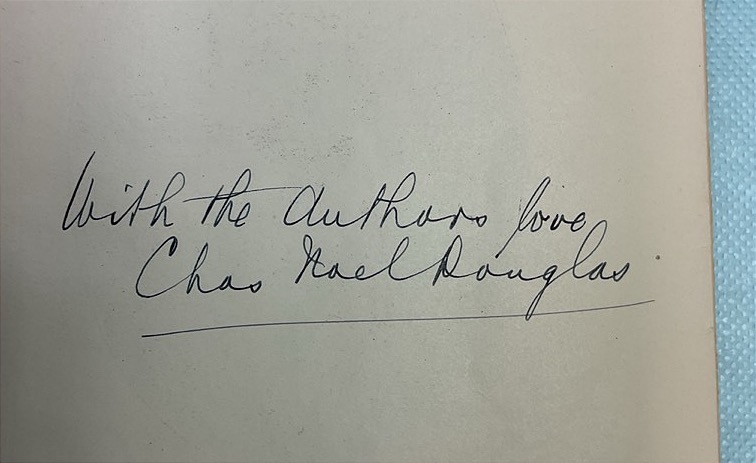 With the Authors love
Chas Noel Douglas